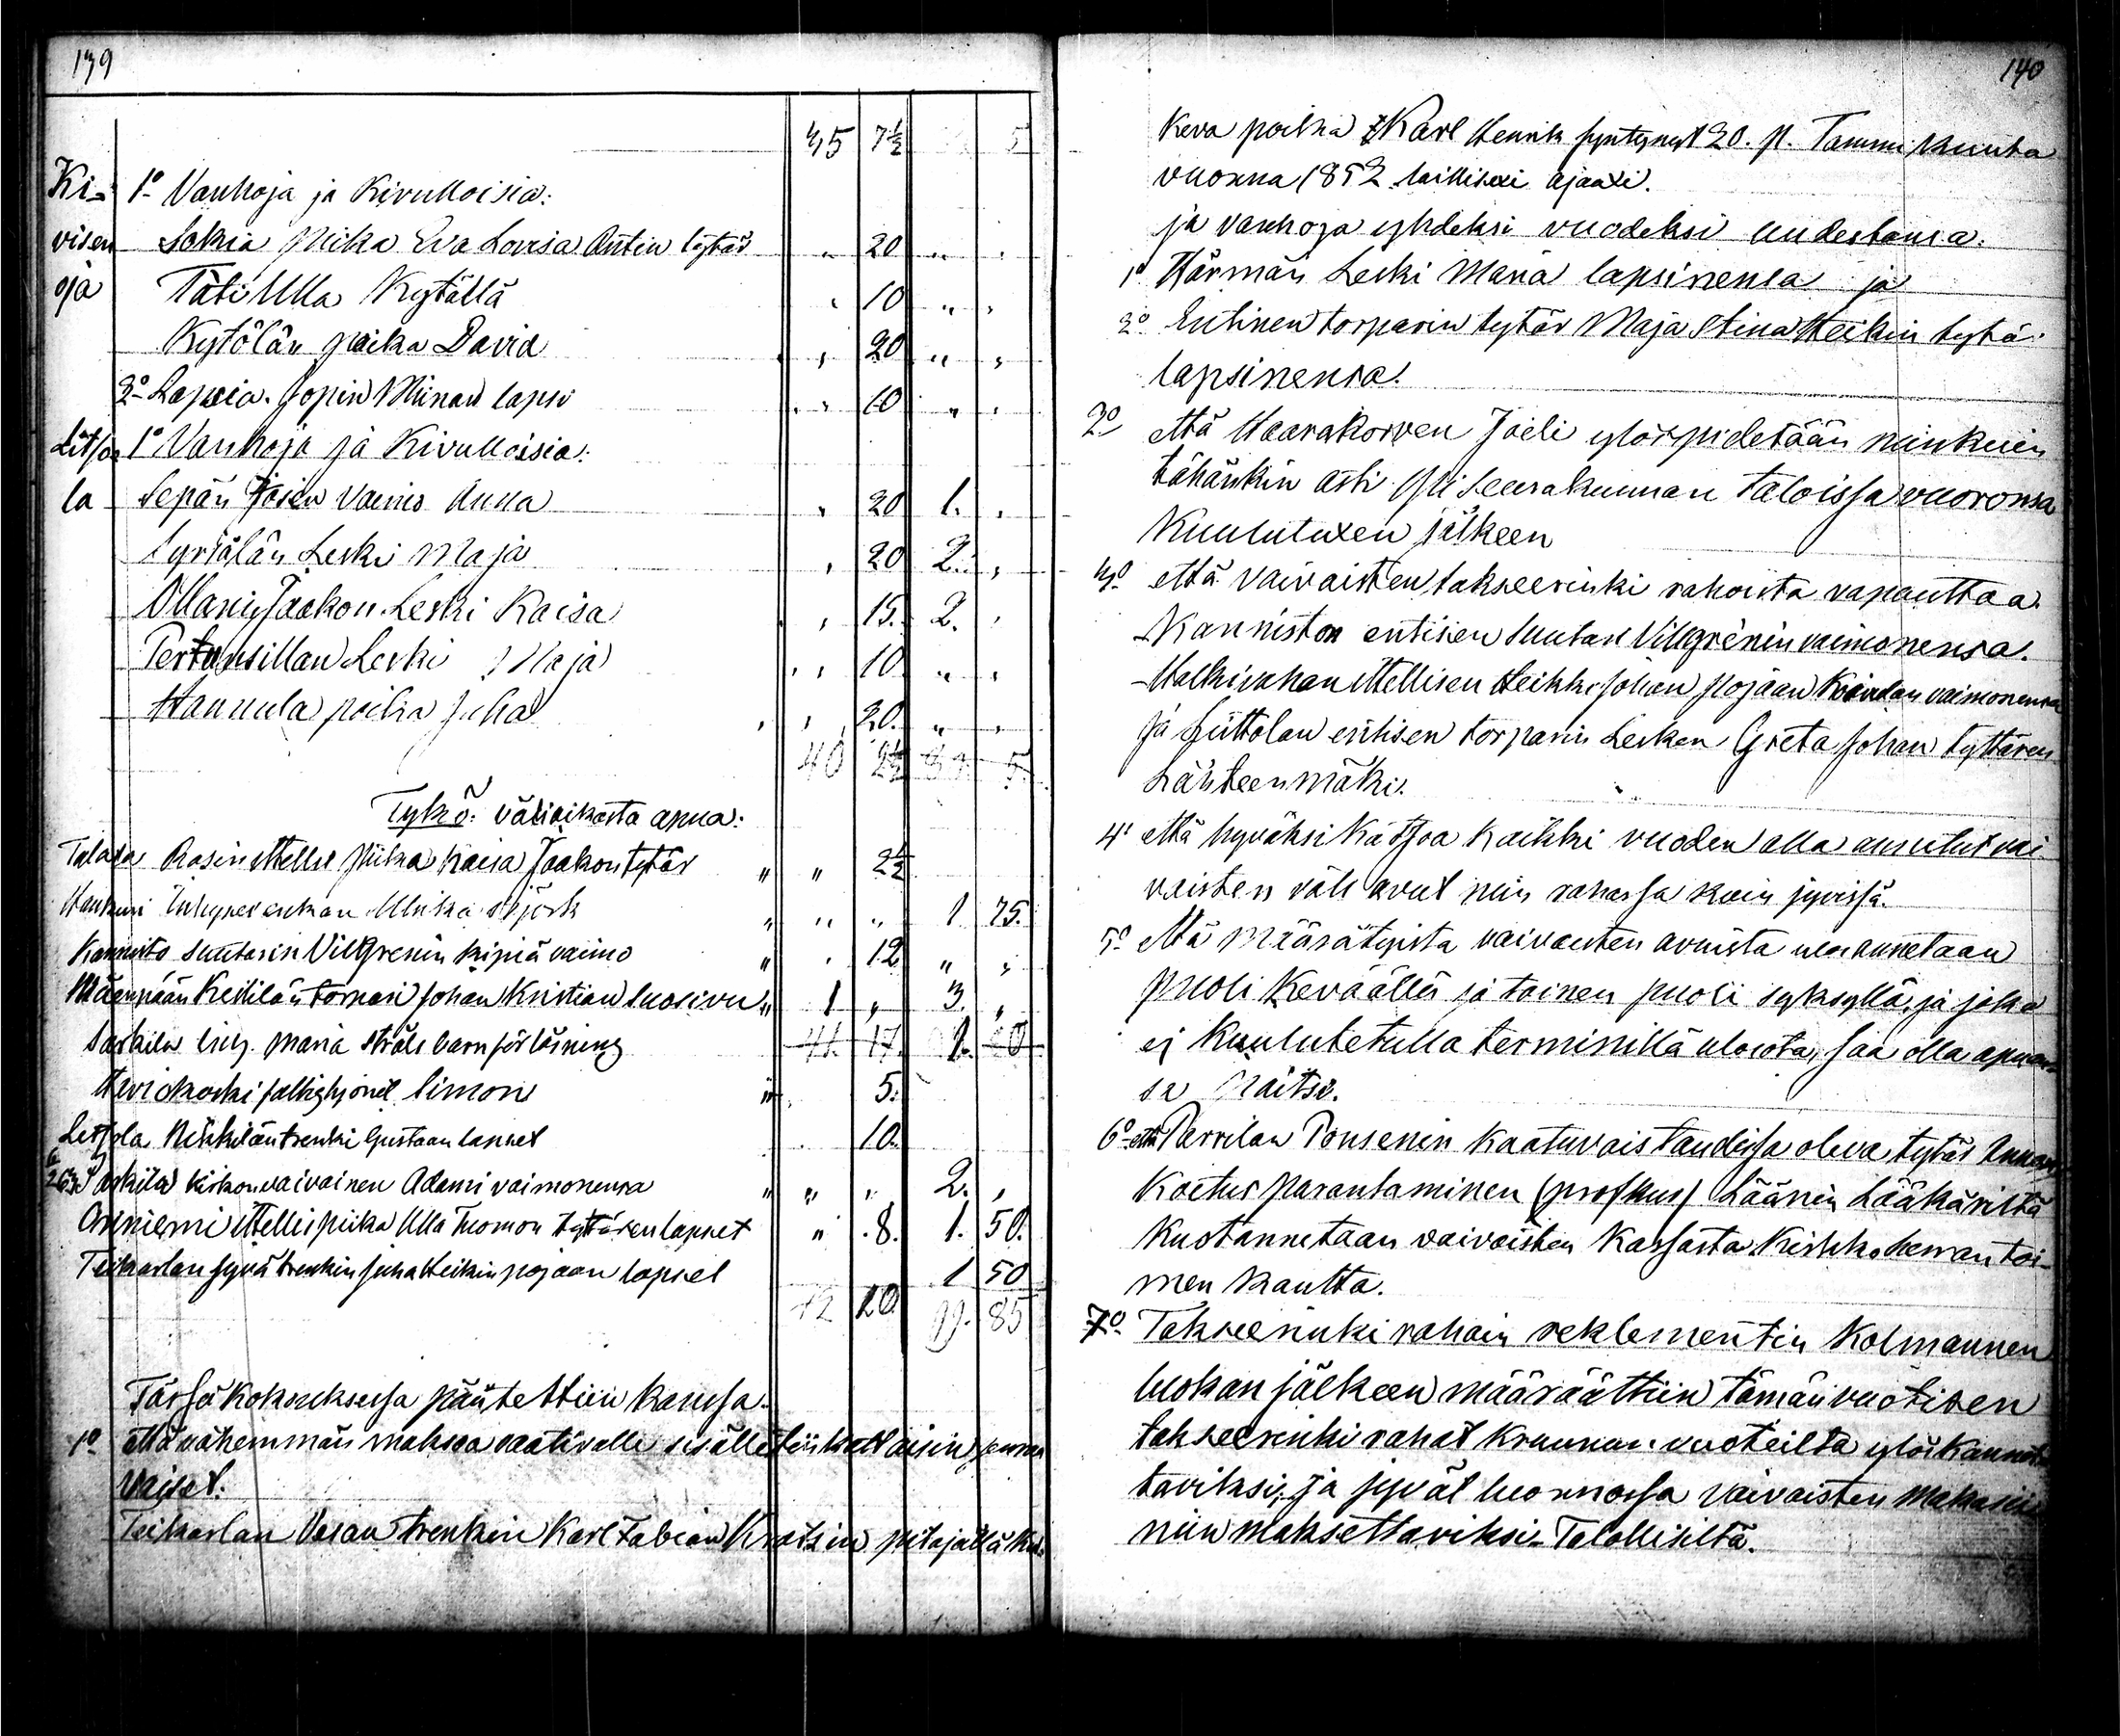 139
35 7½ 5
Ki- 1º Vanhoja ja Kivulloisia:
visen Sokia piika Eva Lovisa Antin tytär „ 20 „ „
oja Täti Ulla Kytällä „ 10 „ „
Kytölän poika David „ 20 „ „
2º Lapsia. Jopin Miinan lapsi „ 10 „ „
Litso 1º Vanhoja ja Kivulloisia:
la Sepän Josin vaimo Anna „ 20 1. „
Syrjälän Leski Maja „ 20 2. „
Ollanin Jaakon Leski Kaisa „ 15. 2. „
Pertunsillan Leski Maja „ 10 „ „
Hannula poika Juha „ 20. „ „
40 2½ 5
Tykö: väliaikasta apua:
Talala Rasin ittellis piika Kaisa Jaakon tytär „ „ 2½
Ulrika Björk „ „ „ 1 75.
Kannisto Suutarin Vilgrenin kipiä vaimo „ „ 12 „ „
Mäenpään Keskilän torpari Johan Kristian Suosivu „ 1 „ 3. „
Saskila Maria Ståls barnförlösning 41. 17. 1. 80
Hevickoski fattighjonet Simon „ 5.
Letsola Nikkilän trenki Gustaan lapset 10.
kirkonvaivainen Adami vaimonensa „ „ „ 2. „
Orsniemi ittellis piika Ulla Tuomon tyttären lapset „ 8. 1. 50.
Teikarlan hyvä trenkin Juha Heikin pojaan lapset 1 50
42 20 99. 85
Tässä Kokouksessa päätettiin kanssa.
1º että vähemmän maksaa vaativalle sisälle
vaiset:
Teikarlan Vasan trenkin Karl Fabian Kratzin pitäjällä
140
keva poika Karl Henrik syntynyt 20. p. Tammikuuta
vuonna 1852 laillisexi ajaaxi.
ja vanhoja yhdeksi vuodeksi uudestansa:
1º Härmän Leski Maria lapsinensa ja
2º Entinen torparin tytär Maja Stina Heikin tytär
lapsinensa.
2º että Haarakorven Joeli ylöspidetään niinkuin
tähänkin asti yli seurakunnan taloissa vuoronsa
Kuulutuxen jälkeen
3º että vaivaisten takseerinki rahoista vapauttaa.
Kanniston entisen Suutari Vilegrenin vaimonensa.
Ittellisen Heikki Johan pojaan vaimonensa
ja Liittolan entisen torparin Lesken Greta Johan tyttären
Lähteenmäki.
4º että hyväksi Katsoa Kaikki vuoden alla annetut vai
vaisten väli avut niin rahassa kuin jyvissä.
5º että määrätyista vaivaisten avuista ulosannetaan
puoli Keväällä ja toinen puoli syksyllä, ja joka
ej kuulutetulla terminillä ulosota, saa olla apuan-
sa paitsi.
6º että Parrilan Ponsenin Kaatuvaistaudissa oleva tytär Annan
Koetus parantaminen (profkus) Läänin Lääkäriltä
Kustannetaan vaivaisten Kassasta Kirkkoherran toi-
men kautta.
7º Takseerinki rahain reklementin Kolmannen
luokan jälkeen määräättiin tämän vuotisen
takseerinki rahat kruunun vuoteilta ylöskannet-
taviksi; ja jyvät luonnossa vaivaisten makasii
niin maksettaviksi Talollisilta.